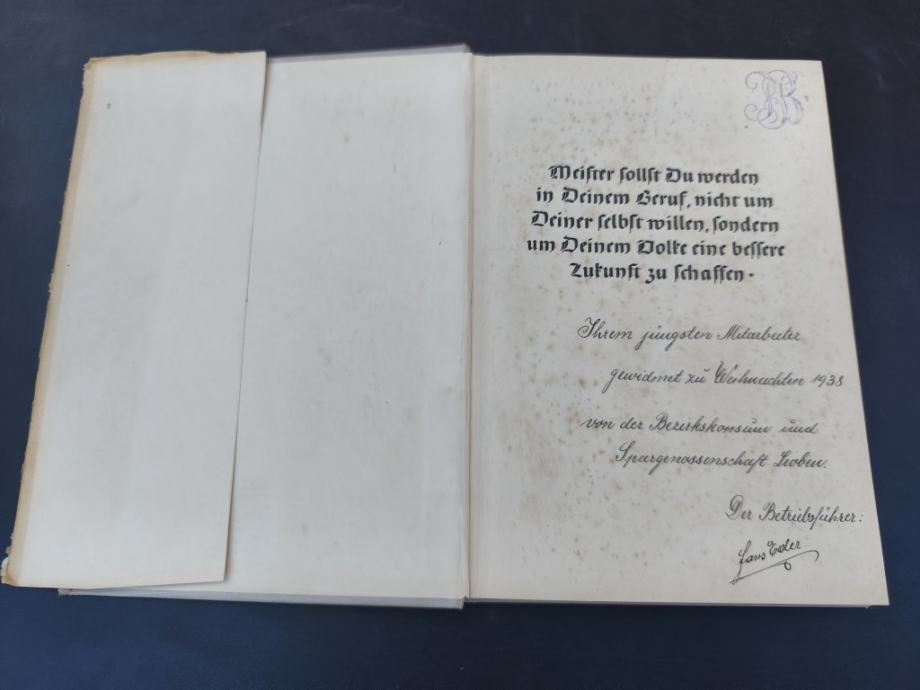 JB
Meister sollst Du werden
in Deinem Beruf, nicht um
Deiner selbst willen, sondern
um Deinem Volke eine bessere
Zukunft zu schaffen.
Ihrem jüngsten Mitarbeiter
gewidmet zu Weihnachten 1938
von der Bezirkskonsum und
Spargenossenschaft Leoben.
Der Betriebsführer:
Hans Eder